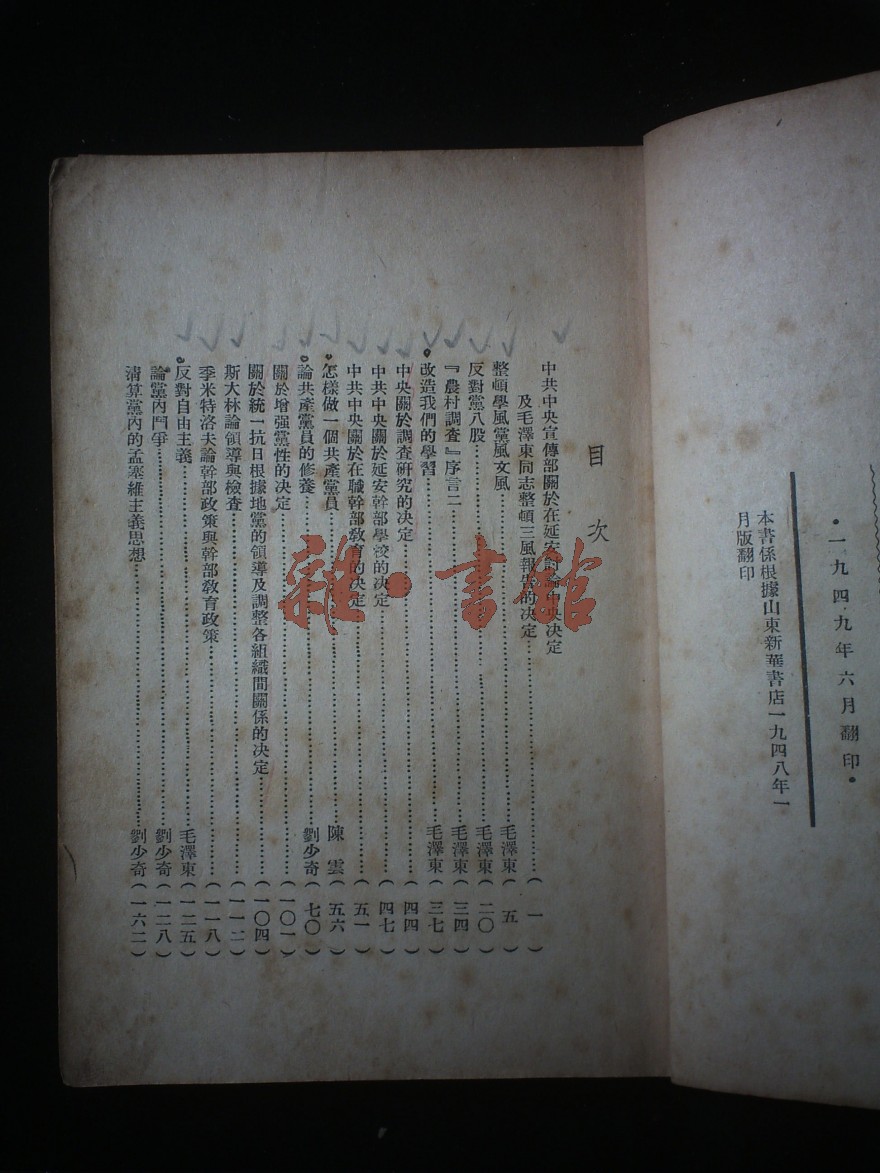 •一九四九年六月翻印•
本書係根據山東新華書店一九四八年一
月版翻印
目次
中共中央宣傳部關於在延安討論中央决定
及毛澤東同志整頓三風報告的决定………(一)
整頓學風黨風文風………毛澤東(五)
反對黨八股………毛澤東(二〇)
『農村調查』序言二………毛澤東(三四)
改造我們的學習………毛澤東(三七)
中央關於調查研究的决定………(四四)
中共中央關於延安幹部學校的决定………(四七)
中共中央關於在職幹部教育的决定………(五一)
怎樣做一個共產黨員………陳雲(五六)
論共產黨員的修養………劉少奇(七〇)
關於增强黨性的决定………(一〇一)
關於統一抗日根據地黨的領導及調整各組織間關係的决定………(一〇四)
斯大林論領導與檢查………(一一二)
季米特洛夫論幹部政策與幹部教育政策………(一一八)
反對自由主義………毛澤東(一二五)
論黨內鬥爭………劉少奇(一二八)
清算黨內的孟塞維主義思想………劉少奇(一六二)
雜·書館